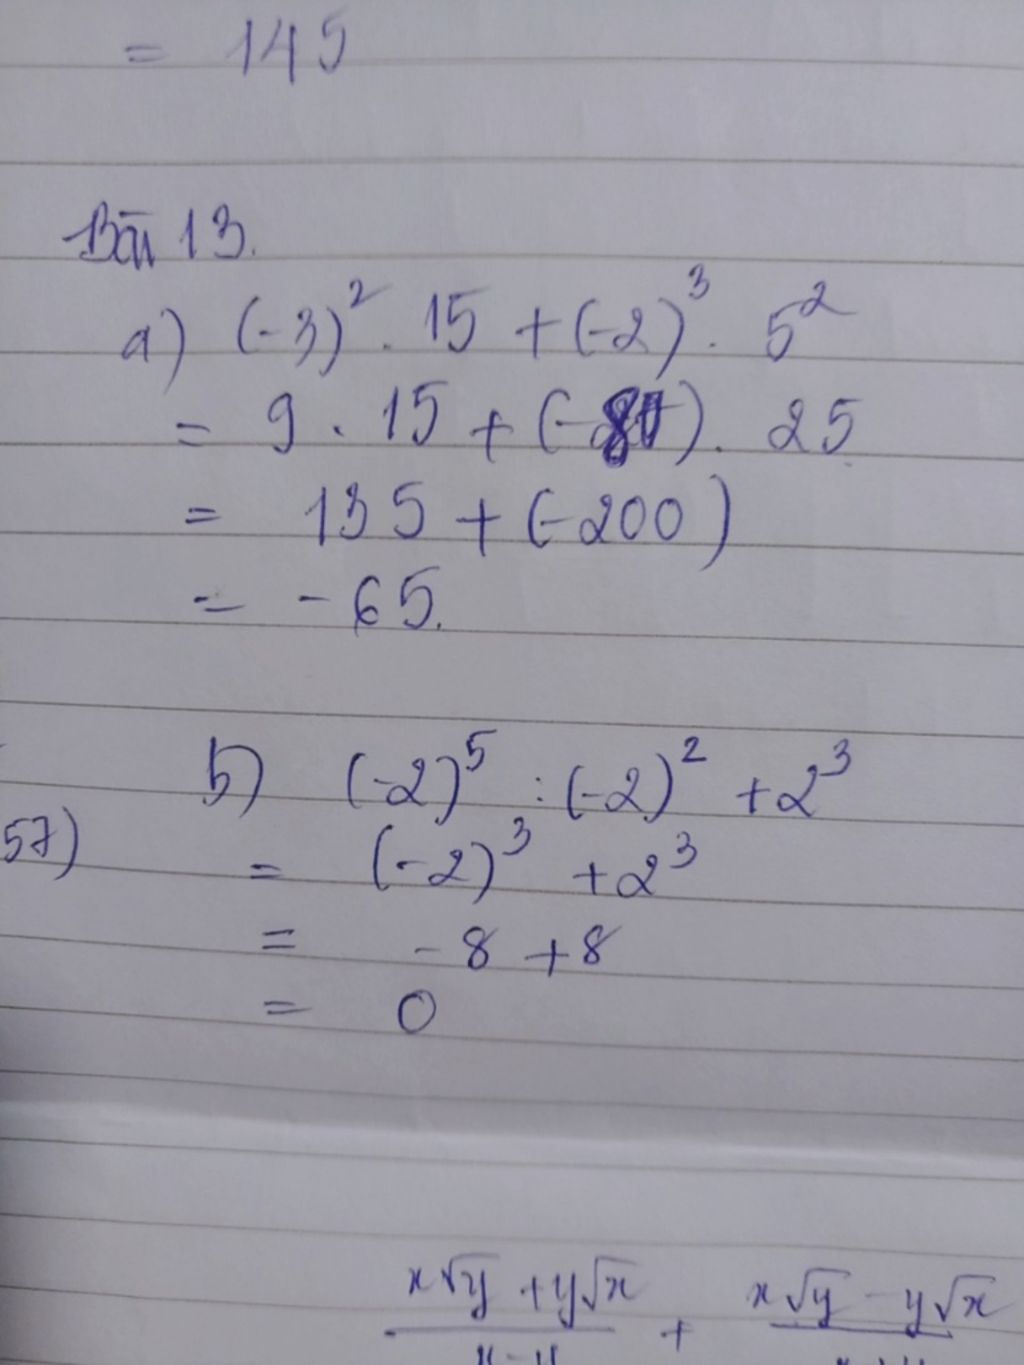 = 145
Bài 13.
a) (-3)². 15 + (-2)³. 5²
= 9 . 15 + (-8). 25
= 135 + (-200)
= -65.
b) (-2)⁵ : (-2)² + 2³
57)
= (-2)³ + 2³
= -8 + 8
= 0
x√y + y√x + x√y - y√x